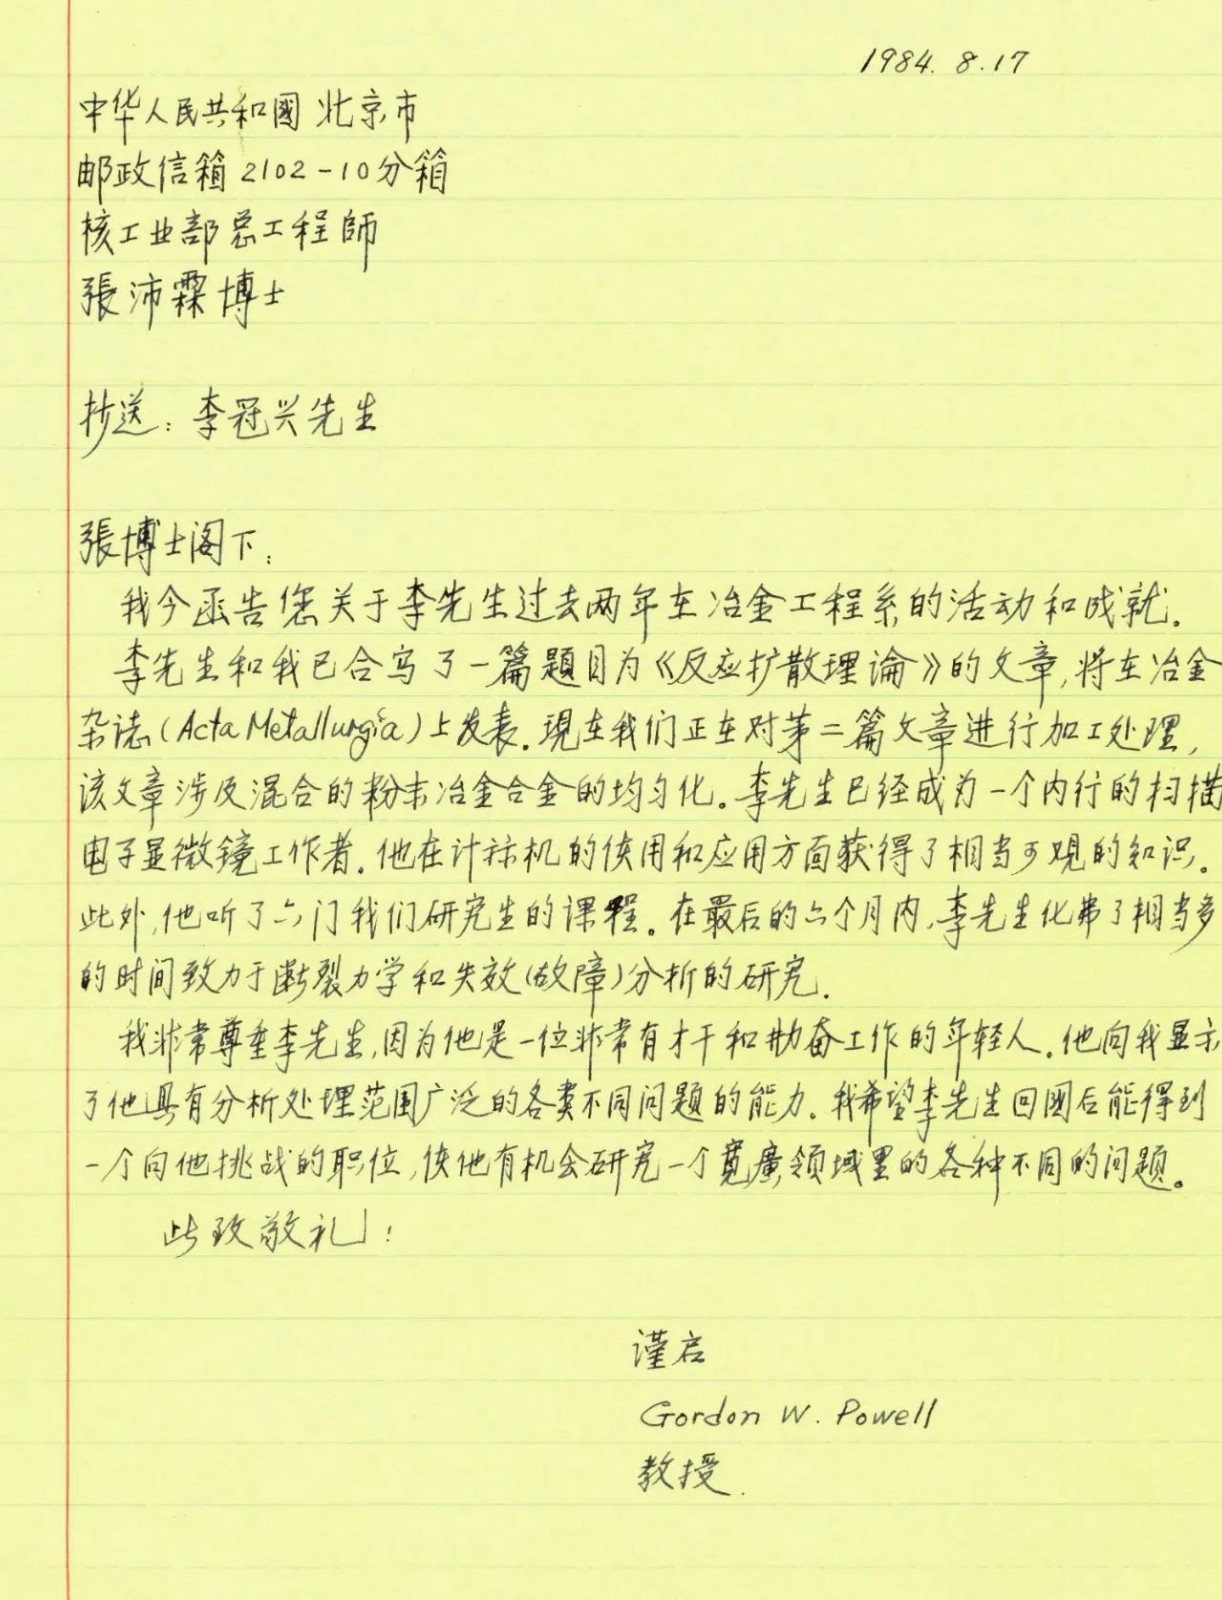 1984. 8.17
中华人民共和國 北京市
邮政信箱 2102-10分箱
核工业部总工程師
張沛霖博士
抄送：李冠兴先生
張博士阁下：
我今函告您关于李先生过去两年在冶金工程系的活动和成就.
李先生和我已合写了一篇題目为《反应扩散理論》的文章,将在冶金
杂誌(Acta Metallurgia)上发表.現在我们正在对第二篇文章进行加工处理,
该文章涉及混合的粉末冶金合金的均匀化。李先生已经成为一个内行的扫描
电子显微镜工作者.他在计祘机的使用和应用方面获得了相当可观的知识.
此外,他听了六门我们研究生的课程。在最后的六个月内,李先生化费了相当多
的时间致力于断裂力学和失效(故障)分析的研究.
我非常尊重李先生,因为他是一位非常有才干和勤奋工作的年轻人.他向我显示
了他具有分析处理范围广泛的各类不同问题的能力.我希望李先生回國后能得到
一个向他挑战的职位,使他有机会研究一个宽廣领域里的各种不同的问题。
此致敬礼!
谨启
Gordon W. Powell
教授.